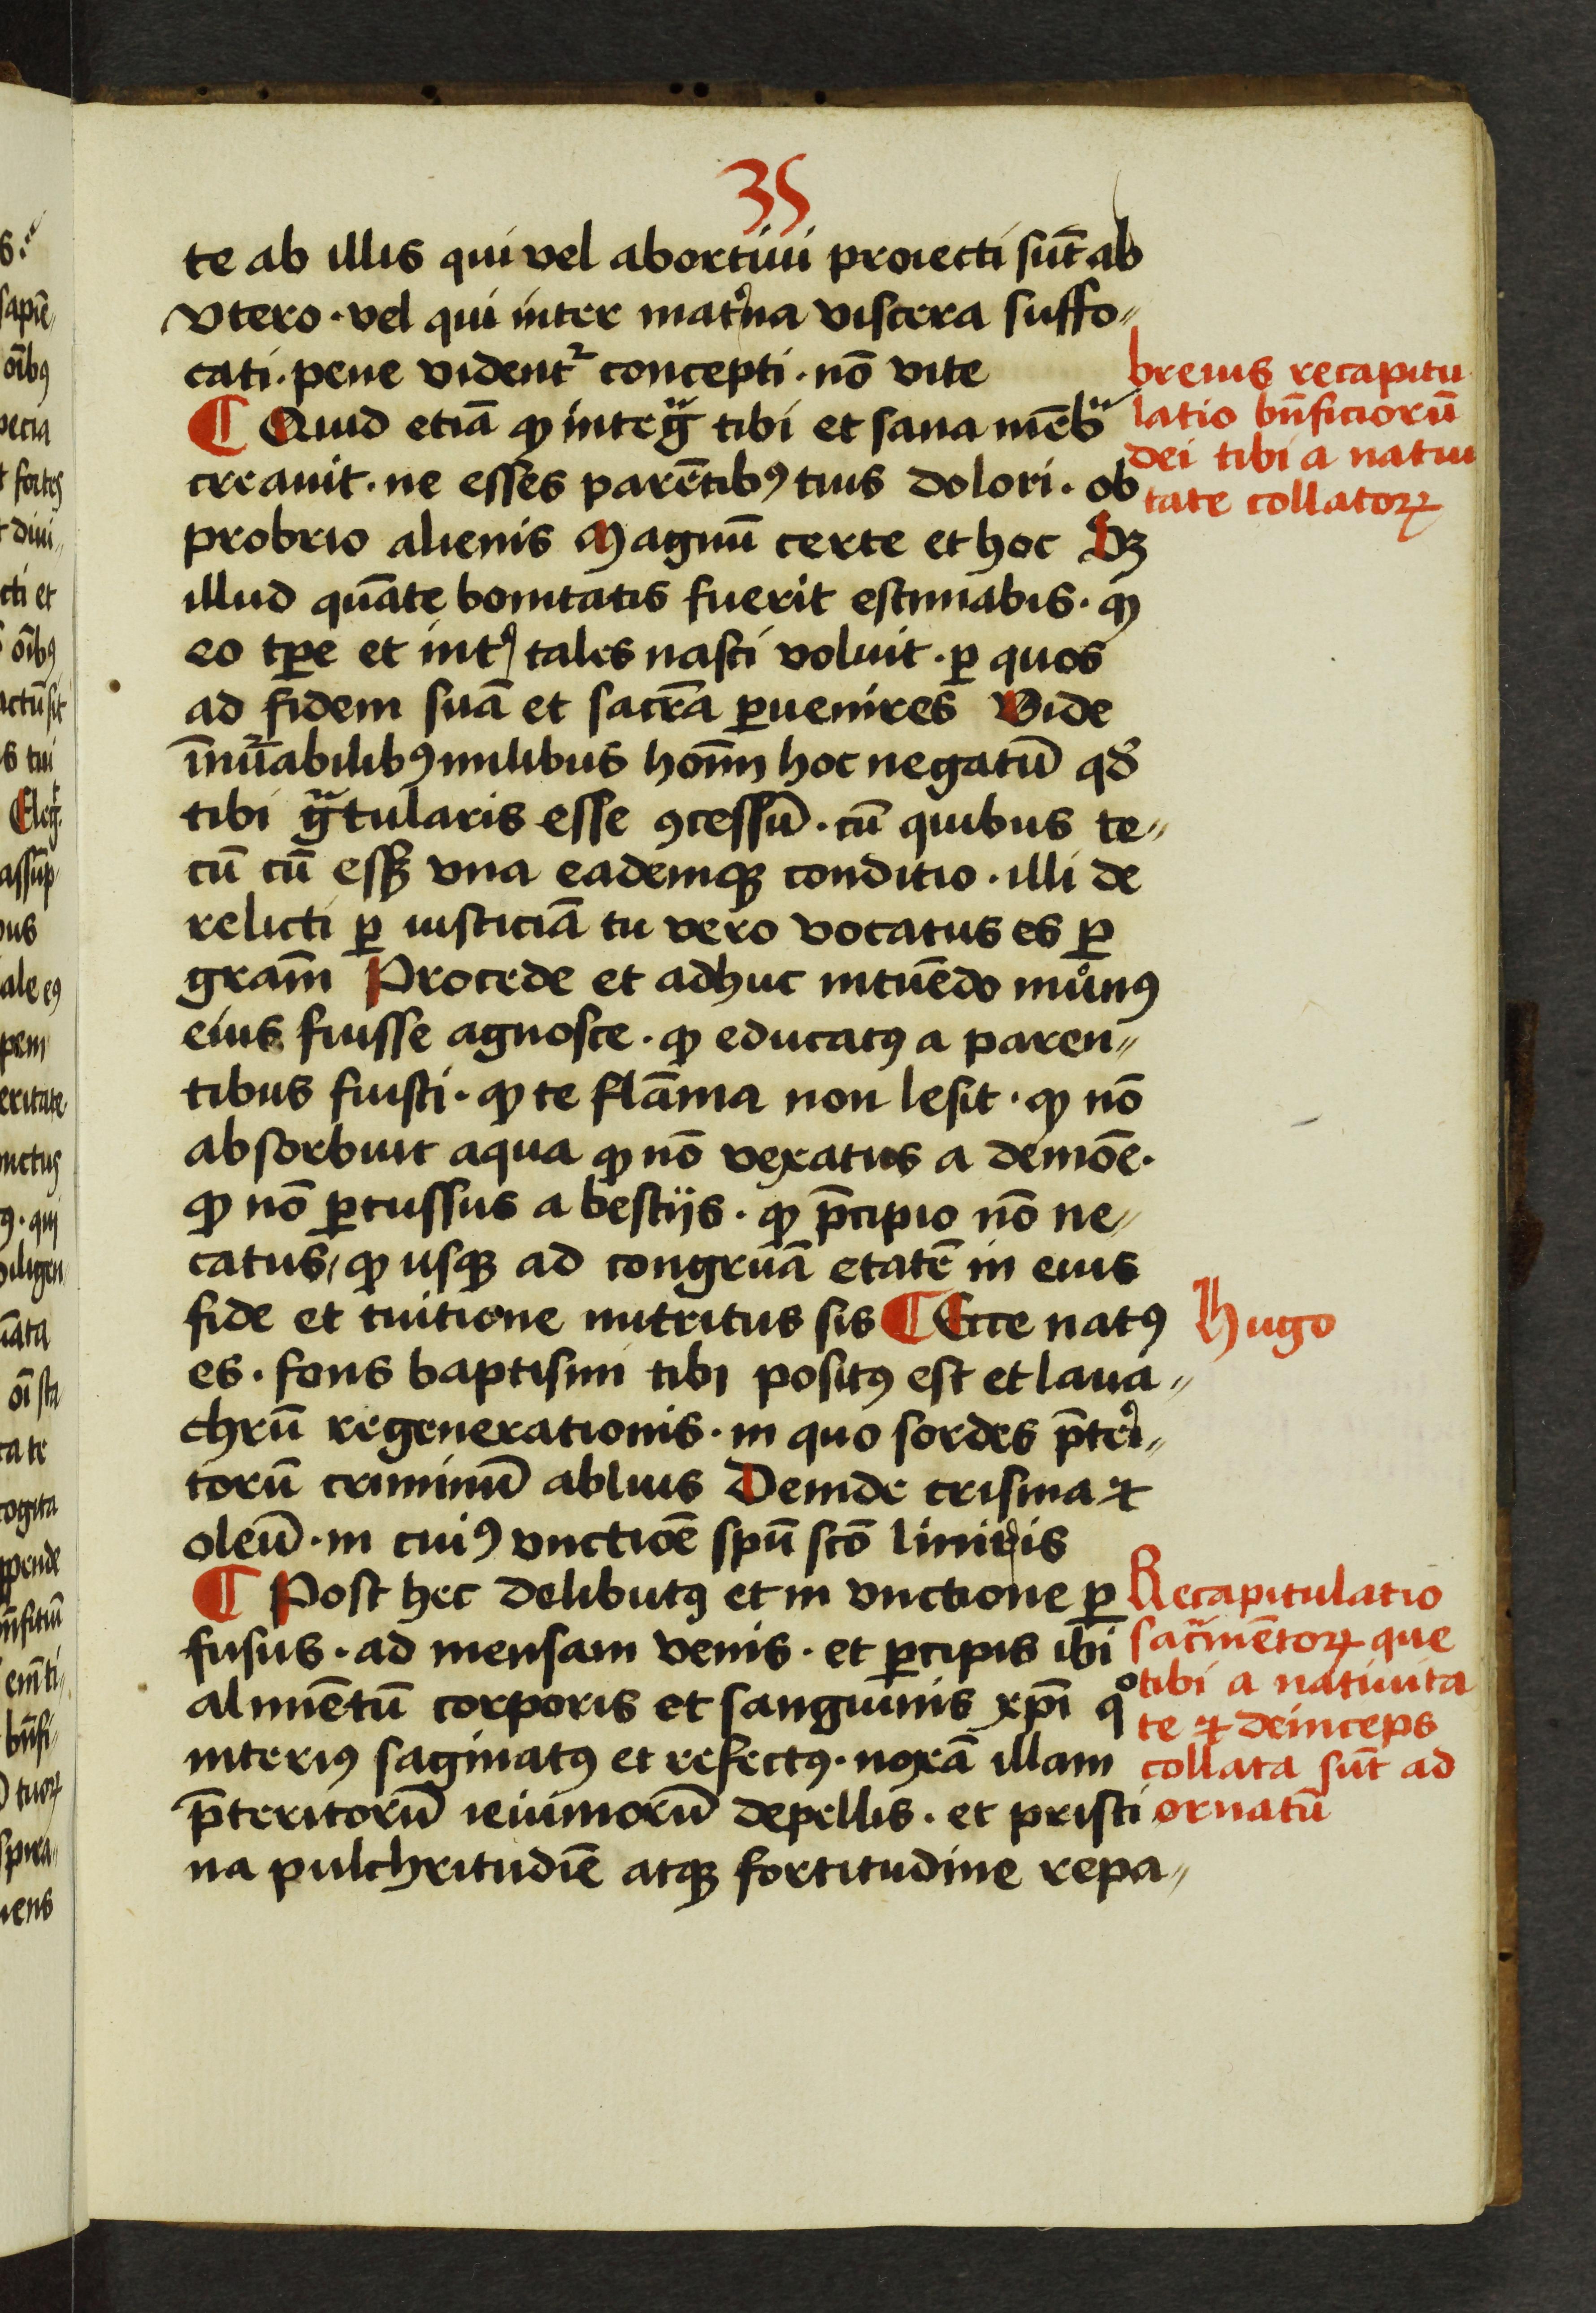 35
te ab illis qui vel abortiui proiecti sūt ab
vtero · vel qui inter mat̛na viscera suffo〃
cati · pene vident᷑ concepti · nō vite
¶ Quid etiā ꝙ integᷓ tibi et sana mēbᷓ
creauit · ne esses parētibꝰ tuis dolori · ob
probrio alienis Magnū certe et hoc Sꝫ
illud quāte bonitatis fuerit estimabis · ꝙ
eo tꝑe et int̛ tales nasci voluit · ꝑ quos
ad fidem suā et sacr̄a ꝑuenires Vide
īnūabilibꝰ milibus hoīm hoc negatū qđ
tibi gᷓtularis esse ꝯcessū · cū quibus te〃
cū cū essꝫ vna eademqꝫ conditio · illi de
relicti ꝑ iusticiā tu vero vocatus es ꝑ
gram̄ Procede et adhuc intuēdo munꝰ
eius fuisse agnosce · ꝙ educatꝰ a paren〃
tibus fuisti · ꝙ te flāma non lesit · ꝙ nō
absorbuit aqua ꝙ nō vexatus a demōe ·
ꝙ nō ꝑcussus a bestijs · ꝙ p̄cipio nō ne〃
catus, ꝙ usqꝫ ad congruā etatē in eius
fide et tuitione nutritus sis ¶ Ecce natꝰ
es · fons baptismi tibi positꝰ est et laua〃
chrū regenerationis · in quo sordes p̄ter̛i〃
torū criminū abluis Deinde crisma ⁊
oleū · in cuiꝰ vnctiōe spū scō liniris
¶ Post hec delibutꝰ et in vnctione ꝑ
fusus · ad mensam venis · et ꝑcipis ibi
alimētū corporis et sanguinis xp̄i qͦ
interiꝰ saginatꝰ et refectꝰ · noxā illam
p̄teritorū ieiuniorū depellis · et pristi
na pulchritudīe atqꝫ fortitudine repa〃
breuis recapitu
latio bn̄ficiorū
dei tibi a natiui
tate collatoꝝ
Hugo
Recapitulatio
sac̄mētoꝝ que
tibi a natiuita
te ⁊ deinceps
collata sūt ad
ornatū